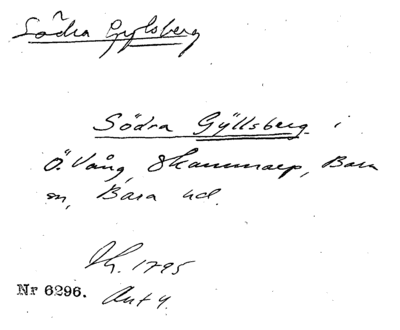 Södra Gylsberg
Södra Gyllsberg i
Ö. Vång, Skammarp, Bara
sn, Bara hd.
Th. 1795
Nr 6296. Ant 4.